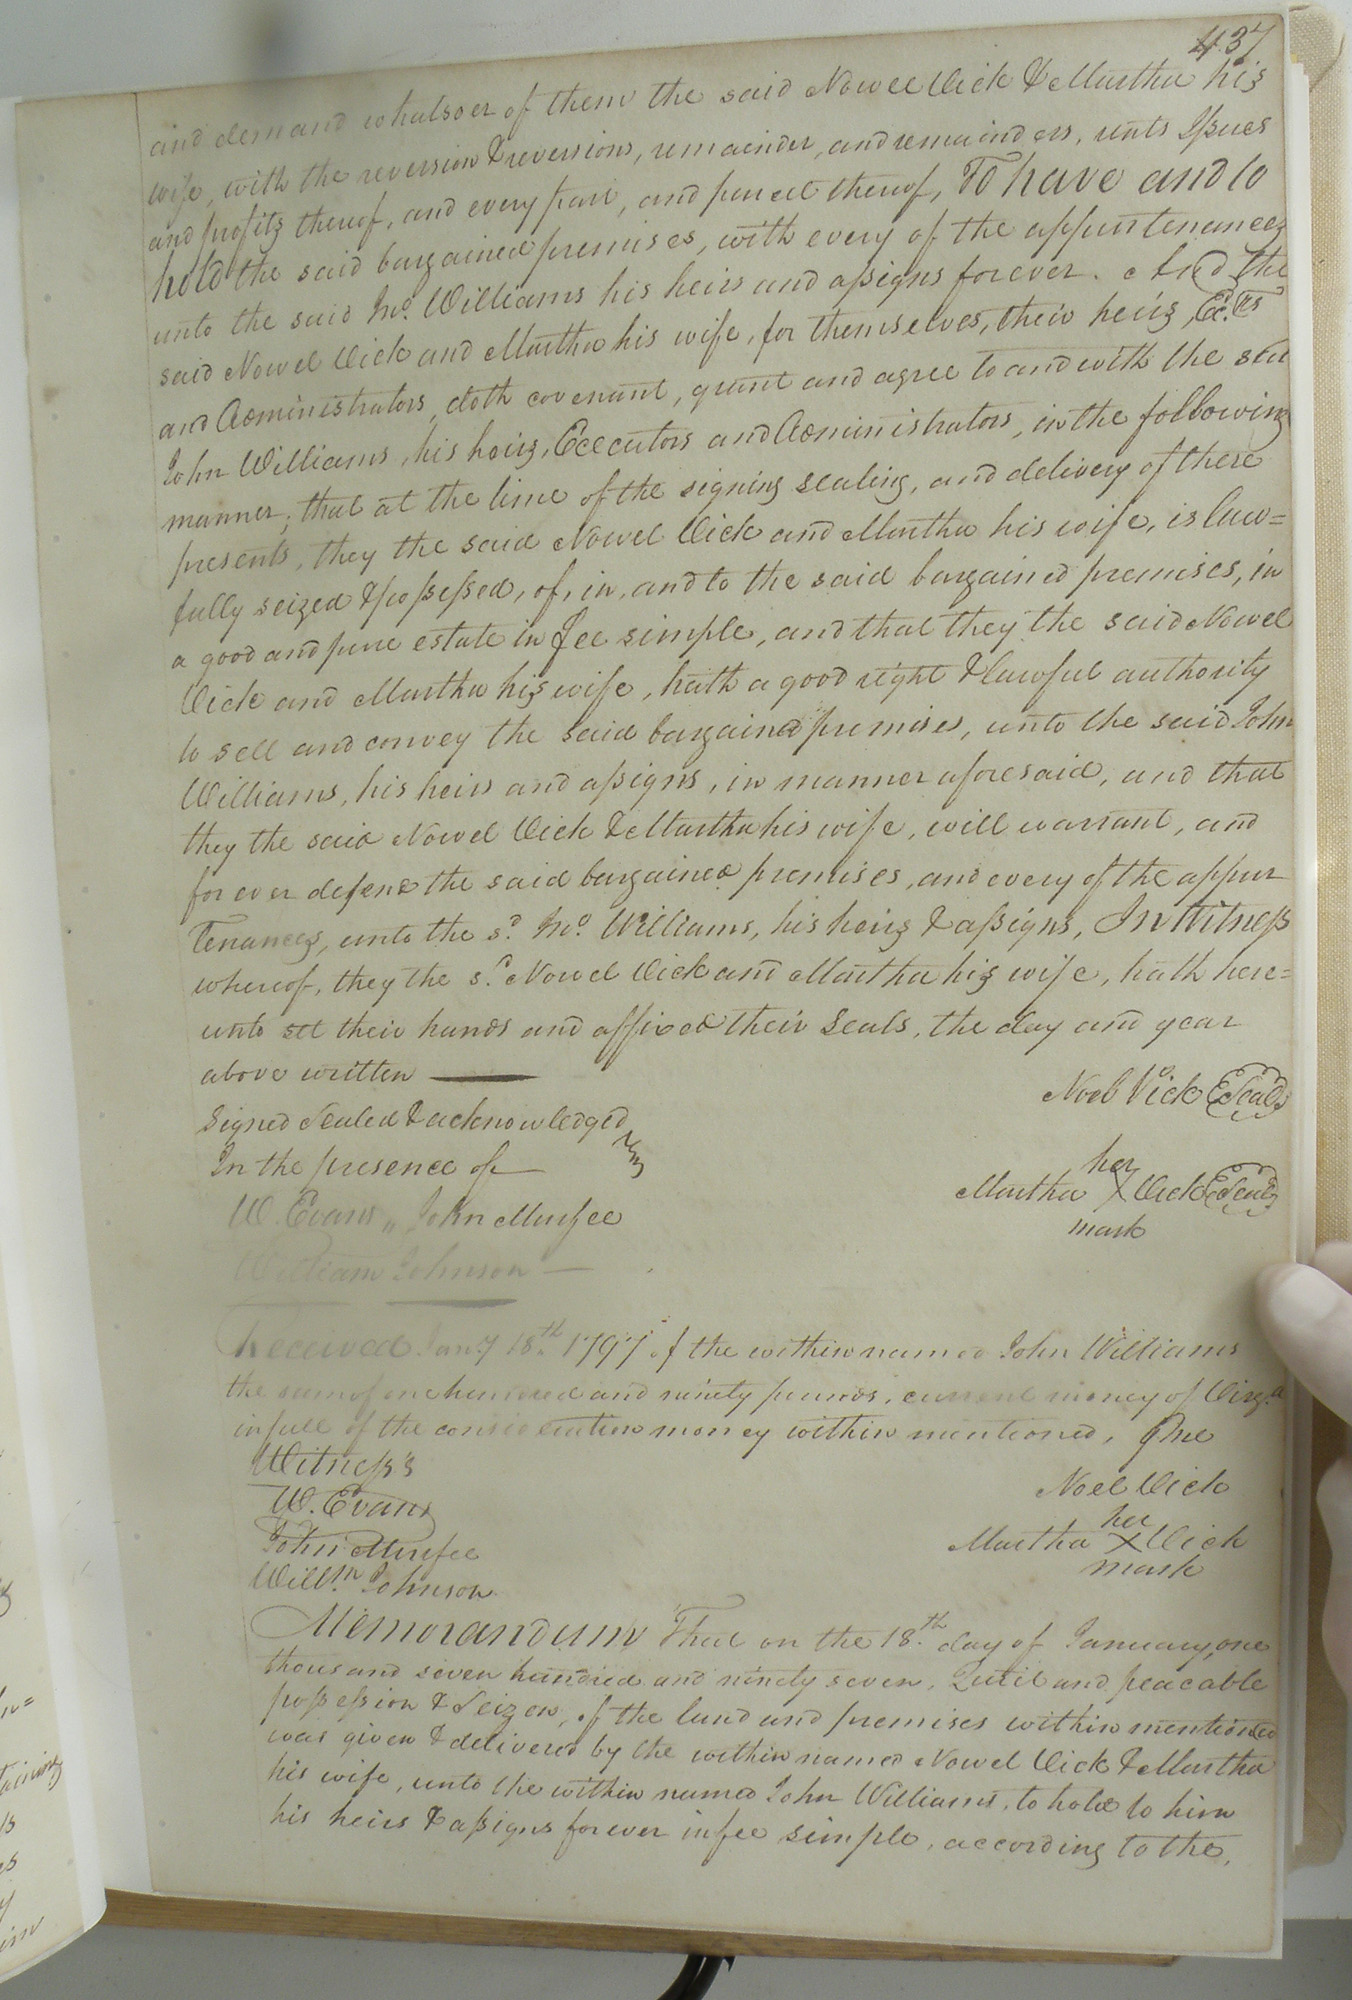 437
and demand whatsoer of them the said Nowel Vick & Martha his
wife, with the reversion & reversions, remainder, and remainders, rents Issues
and profits thereof, and every part, and parcel thereof, To have and to
hold the said bargained premises, with every of the appurtenances
unto the said Jno. Williams his heirs and assigns forever. And the
said Nowel Vick and Martha his wife, for themselves, their heirs, Ex.ors
and Administrators, doth covenant, grant and agree to and with the said
John Williams, his heirs, Executors and Administrators, in the following
manner; that at the time of the signing sealing, and delivery of these
presents, they the said Nowel Vick and Martha his wife, is law=
fully seized & possessed, of, in, and to the said bargained premises, in
a good and pure estate in fee simple, and that they the said Nowel
Vick and Martha his wife, hath a good right & lawful authority
to sell and convey the said bargained premises, unto the said John
Williams, his heirs and assigns, in manner aforesaid, and that
they the said Nowel Vick & Martha his wife, will warrant, and
forever defend the said bargained premises, and every of the appur
tenances, unto the sd. Jno. Williams, his heirs & assigns, In Witness
whereof, they the sd. Nowel Vick and Martha his wife, hath here=
unto set their hands and affixed their Seals, the day and year
above written
Noel Vick Seal
Signed Sealed & acknowledged
In the presence of
her
Martha X Vick Seal
mark
W. Evans, John Murfee
William Johnson
Received Jany 18th 1797 of the within named John Williams
the sum of one hundred and ninety pounds, current money of Virga
in full of the consideration money within mentioned, Pme
Witness's
Noel Vick
W. Evans
her
Martha X Vick
mark
John Murfee
Willm Johnson
Memorandum That on the 18th day of January, one
thousand seven hundred and ninety seven, Quiet and peacable
possession & Seizen, of the land and premises within mentioned
was given & delivered by the within named Nowel Vick & Martha
his wife, unto the within named John Williams, to hold to him
his heirs & assigns forever in fee simple, according to the